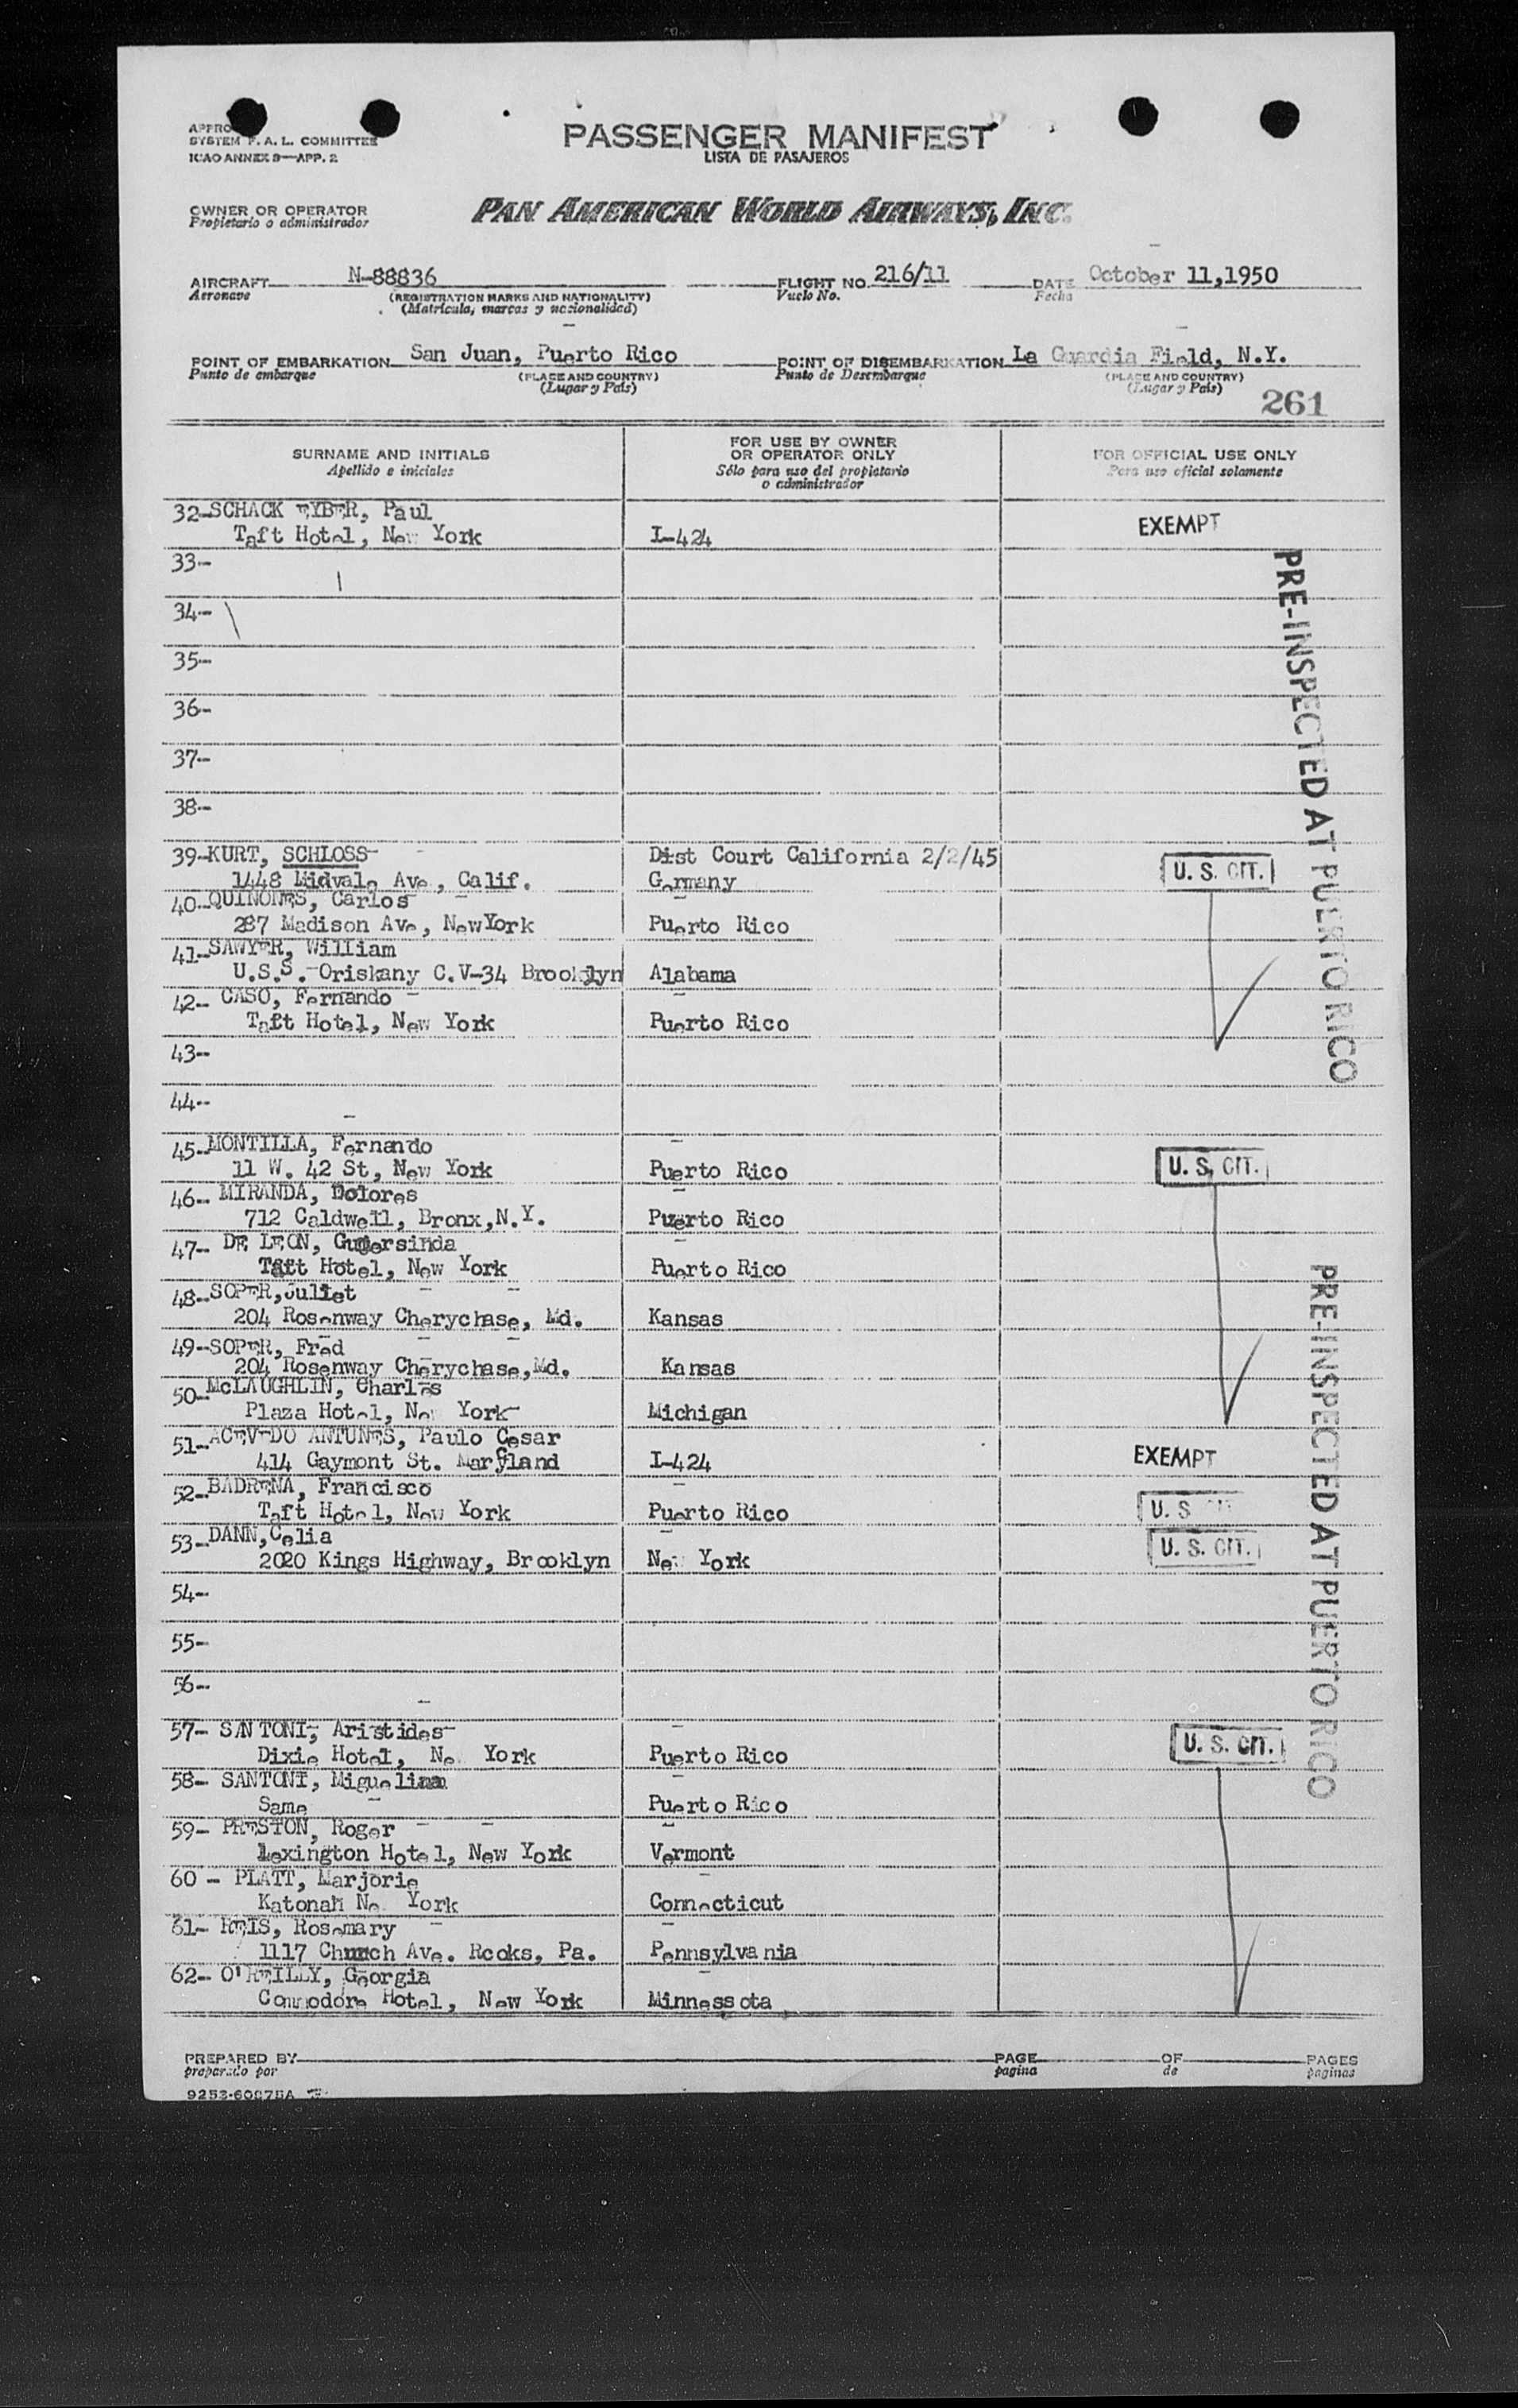 PASSENGER MANIFEST
LISTA DE PASAJEROS
SYSTEM F. A. L. COMMITTEE
ICAO ANNEX 9—APP. 2
OWNER OR OPERATOR
Propietario o administrador
PAN AMERICAN WORLD AIRWAYS, INC.
AIRCRAFT N-88836 FLIGHT NO. 216/11 DATE October 11,1950
Aeronave (REGISTRATION MARKS AND NATIONALITY) Vuelo No. Fecha
(Matrícula, marcas y nacionalidad)
POINT OF EMBARKATION San Juan, Puerto Rico POINT OF DISEMBARKATION La Guardia Field, N.Y.
Punto de embarque (PLACE AND COUNTRY) Punto de Desembarque (PLACE AND COUNTRY)
(Lugar y País) (Lugar y País)
261
SURNAME AND INITIALS FOR USE BY OWNER OR OPERATOR ONLY FOR OFFICIAL USE ONLY
Apellido e iniciales Sólo para uso del propietario o administrador Para uso oficial solamente
32-SCHACK EYBER, Paul
Taft Hotel, New York I-424 EXEMPT
33-
34-
35-
36-
37-
38-
39-KURT, SCHLOSS Dist Court California 2/2/45 U. S. CIT.
1448 Midvale Ave, Calif. Germany
40-QUINONES, Carlos
287 Madison Ave, NewYork Puerto Rico
41-SAWYER, William
U.S.S. Oriskany C.V-34 Brooklyn Alabama
42- CASO, Fernando
Taft Hotel, New York Puerto Rico
43-
44-
PRE-INSPECTED AT PUERTO RICO
45-MONTILLA, Fernando
11 W. 42 St, New York Puerto Rico U. S. CIT.
46- MIRANDA, Dolores
712 Caldwell, Bronx,N.Y. Puerto Rico
47- DE LEON, Gumersinda
Taft Hotel, New York Puerto Rico
48-SOPER,Juliet
204 Rosenway Cherychase, Md. Kansas
49-SOPER, Fred
204 Rosenway Cherychase,Md. Kansas
50-McLAUGHLIN, Charles
Plaza Hotel, New York Michigan
51-ACEVEDO ANTUNES, Paulo Cesar
414 Gaymont St. Maryland I-424 EXEMPT
52-BADRENA, Francisco
Taft Hotel, New York Puerto Rico U. S. CIT.
53-DANN,Celia
2020 Kings Highway, Brooklyn New York U. S. CIT.
54-
55-
56-
57- SANTONI, Aristides
Dixie Hotel, New York Puerto Rico U. S. CIT.
58- SANTONI, Miguelina
Same Puerto Rico
59- PRESTON, Roger
Lexington Hotel, New York Vermont
60 - PLATT, Marjorie
Katonah New York Connecticut
61- REIS, Rosemary
1117 Church Ave. Rcoks, Pa. Pennsylvania
62- O'REILLY, Georgia
Commodore Hotel, New York Minnessota
PRE-INSPECTED AT PUERTO RICO
PREPARED BY PAGE OF PAGES
preparado por pagina de paginas